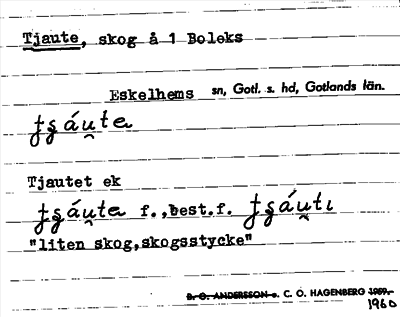 Tjaute, skog å 1 Boleks
Eskelhems sn, Gotl. s. hd, Gotlands län.
ʈʂáu̯te
Tjautet ek
ʈʂáu̯te f., best.f. ʈʂáu̯tı
"liten skog,skogsstycke"
B. O. ANDERSSON o. C. O. HAGENBERG 1959.
1960